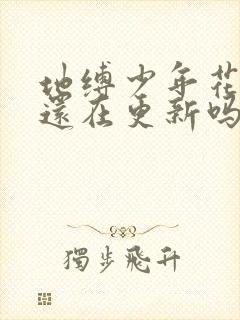 地缚少年花
還在更新吗
獨步飛升